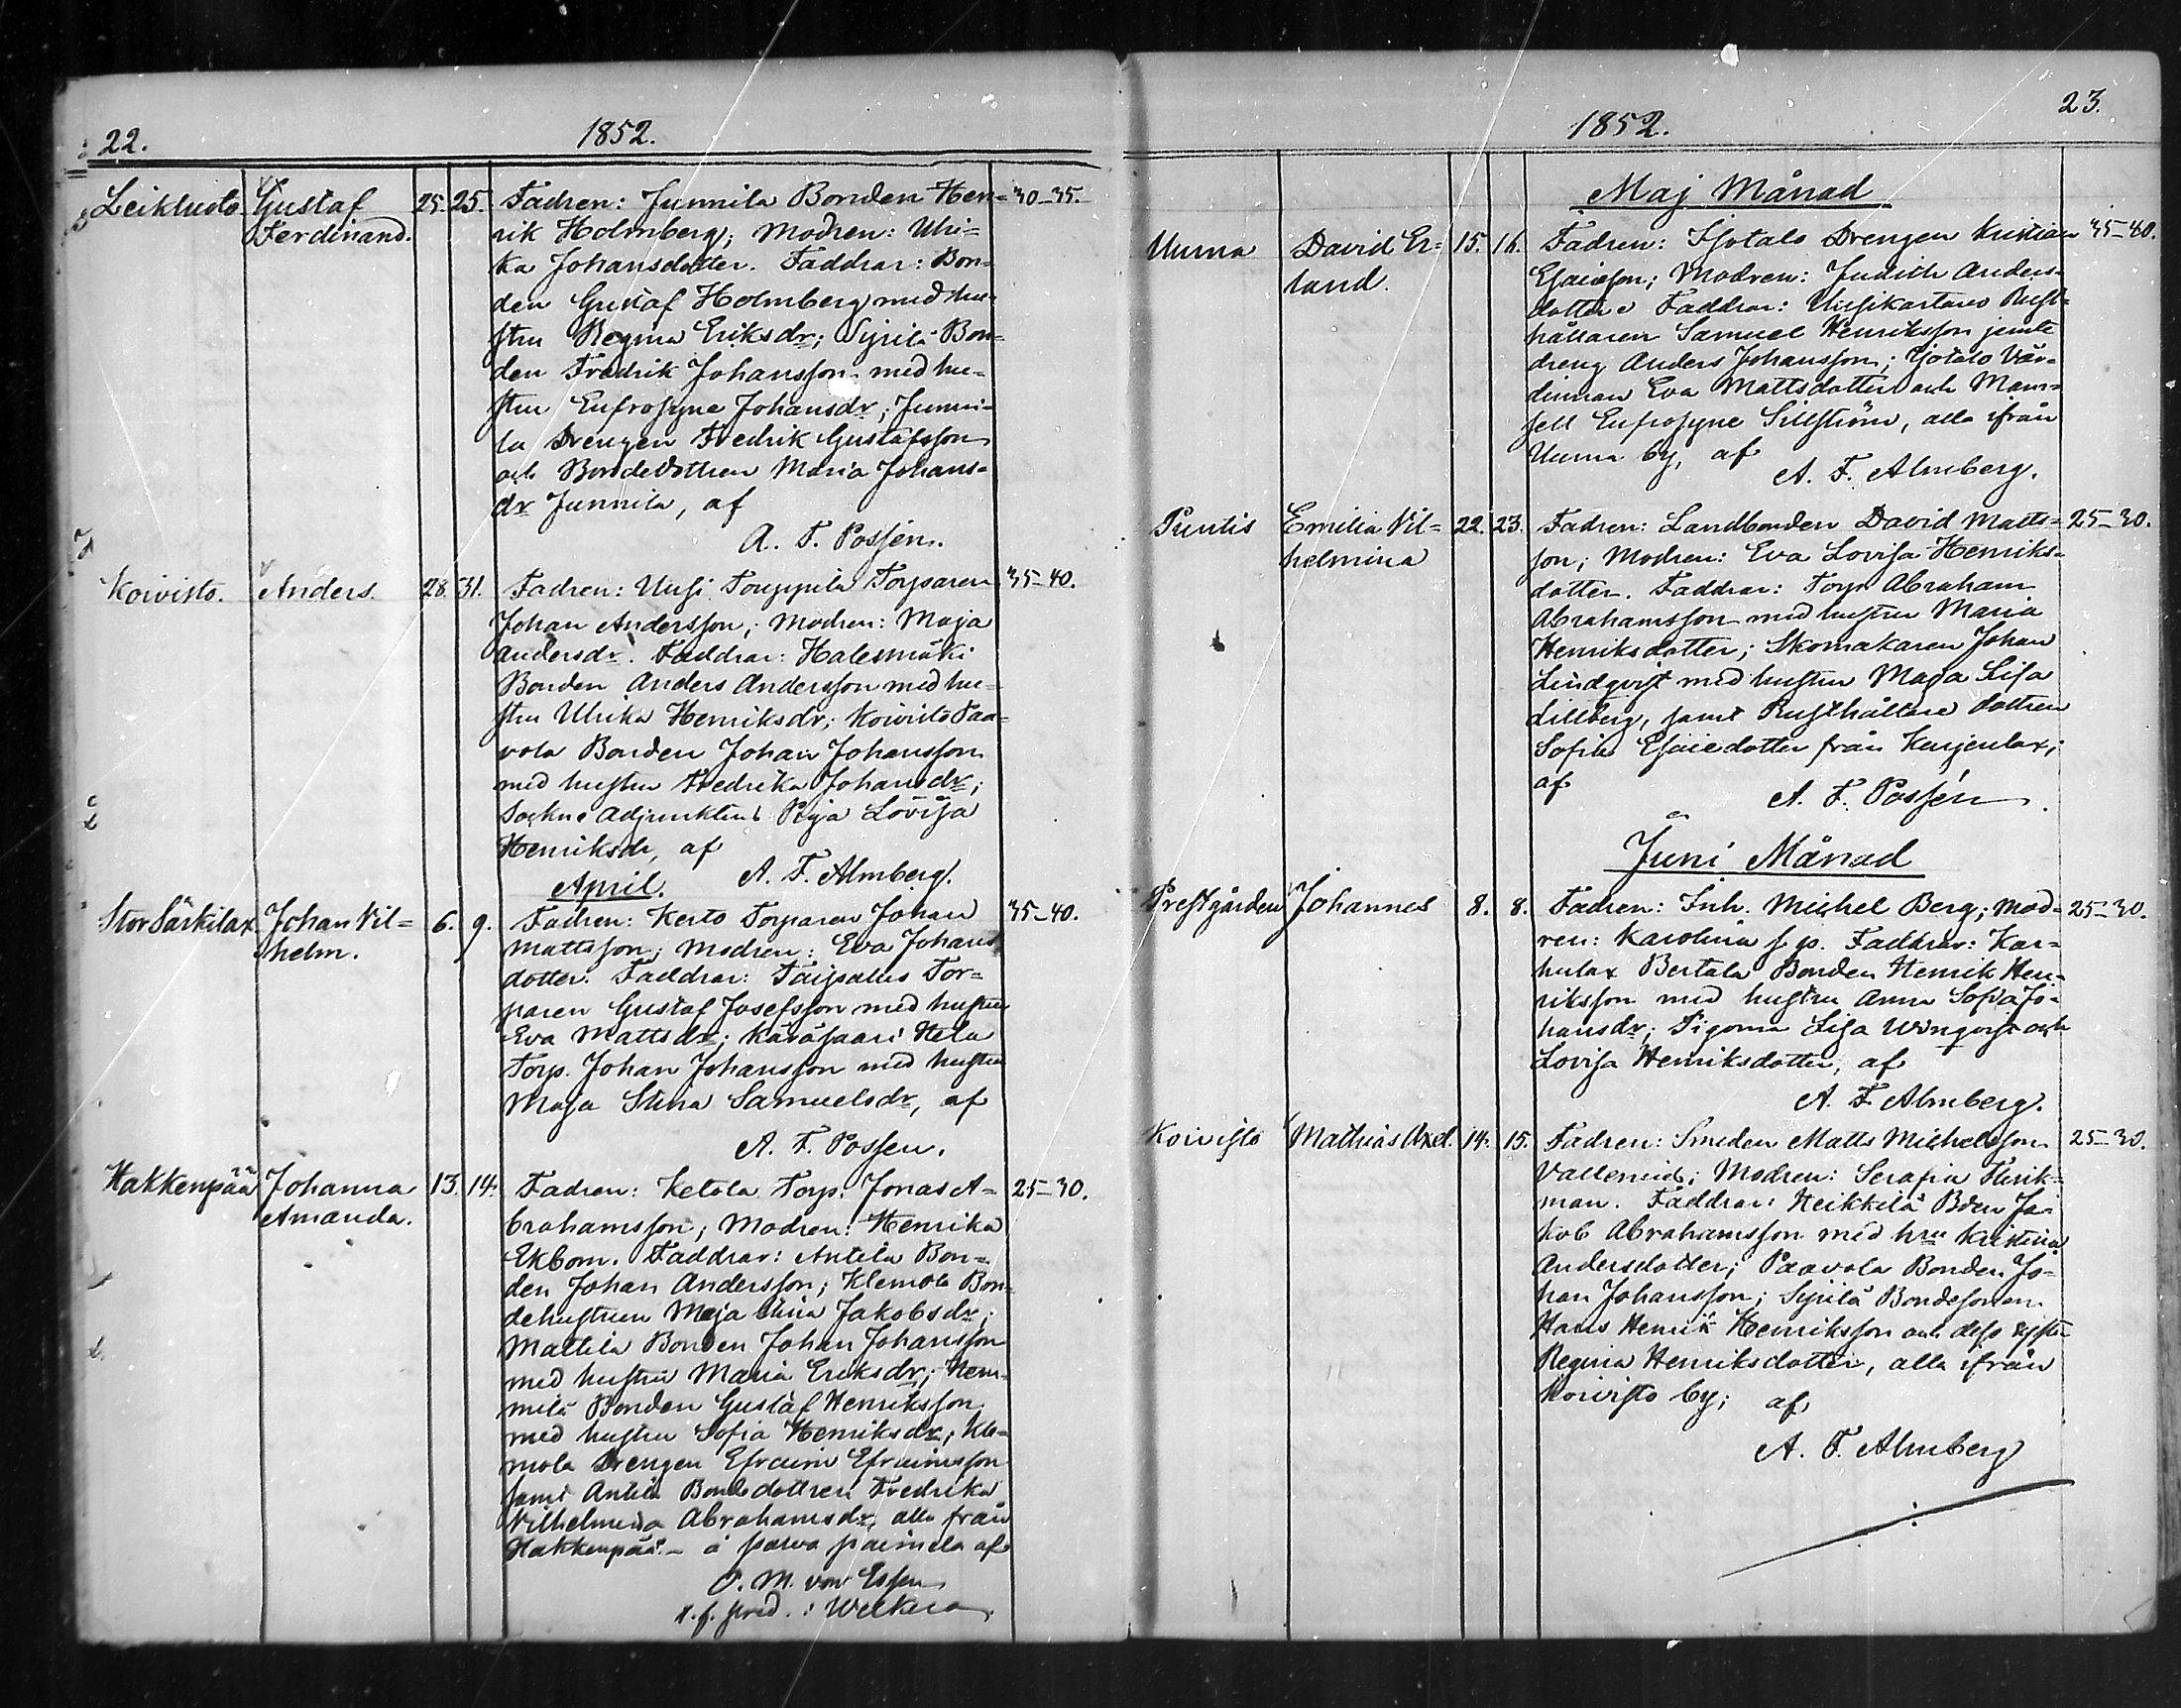 22.
1852.
Leikluoto Gustaf 25. 25. Fadren: Junnila Bonden Hen= 30-35.
Ferdinand. rik Holmberg; Modren: Ulri=
ka Johansdotter. Faddrar: Bon=
den Gustaf Holmberg med hu=
stru Regina Eriksdr; Syrilä Bon=
den Fredrik Johansson med hu=
stru Eufrosyne Johansdr; Junni=
la Drengen Fredrik Gustafsson
och Bondedottren Maria Johans=
dr Junnila, af
A. F. Possén.
Koivisto. Anders. 28. 31. Fadren: Uusi Torparen 35-40.
Johan Andersson; Modren: Maja
Andersdr. Faddrar: Halesmäki
Bonden Anders Andersson med hu=
stru Ulrika Henriksdr; Koivisto Paa=
vola Bonden Johan Johansson
med hustru Fredrika Johansdr;
Sockne Adjunktens Piga Lovisa
Henriksdr, af
A. F. Almberg.
April.
Stor Särkilax Johan Vil= 6. 9. Fadren: Kerto Torparen Johan 35-40.
helm. Mattsson; Modren: Eva Johans
dotter. Faddrar: Taipalus Tor=
paren Gustaf Josefsson med hustru
Eva Mattsdr; Kaväsaari Kela
Torp. Johan Johansson med hustru
Maja Stina Samuelsdr, af
A. F. Possen.
Hakkenpää Johanna 13. 14. Fadren: Ketola Torp. Jonas A= 25-30.
Amanda. brahamsson; Modren: Henrika
Ekbom. Faddrar: Antila Bon=
den Johan Andersson; Klemola Bon=
dehustrun Maja Stina Jakobsdr;
Mattila Bonden Johan Johansson
med hustru Maria Eriksdr; Hem=
milä Bonden Gustaf Henriksson
med hustru Sofia Henriksdr; Kle=
mola Drengen Efraim Efraimsson
samt Antila Bondedottren Fredrika
Vilhelmina Abrahamsdr, alla från
Hakkenpää - af
O. M. von Essen
v. f. pred. i Welkua.
23.
1852.
Maj Månad
Uuma David Er= 15. 16. Fadren: Isotalo Drengen Kristian 35-40.
land. Esaiesson; Modren: Judith Anders=
dotter. Faddrar: Uusikartano Rust=
hållaren Samuel Henriksson jemte
dreng Anders Johansson; Isotalo Vär=
dinnan Eva Mattsdotter och Mam=
sell Eufrosyne Sillström, alla ifrån
Uuma by, af
A. F. Almberg.
Puntis Emilia Vil= 22. 23. Fadren: Landbonden David Matts= 25-30.
helmina son; Modren: Eva Lovisa Henriks=
dotter. Faddrar: Torp. Abraham
Abrahamsson med hustru Maria
Henriksdotter; Skomakaren Johan
Lindqvist med hustru Maja Lisa
Lillberg, samt Rusthållare dottren
Sofia Esaiedotter från Kurjenlax;
af
A. F. Possén.
Juni Månad
Prestgården Johannes 8. 8. Fadren: Inh. Michel Berg; Mod= 25-30.
ren: Karolina Faddrar: Kar=
hulax Bertala Bonden Henrik Hen=
riksson med hustru Anna Sofia Jo=
hansdr; Pigorna Lisa Winqvist och
Lovisa Henriksdotter, af
A. F. Almberg.
Koivisto Mathias Axel. 14. 15. Fadren: Smeden Matts Michelsson 25-30.
Vallenius; Modren: Serafia
man. Faddrar: Heikkilä Bden Ja=
kob Abrahamsson med hru Kristina
Andersdotter; Paavola Bonden Jo=
han Johansson; Syrilä Bondesonen
Hans Henrik Henriksson och dess syster
Regina Henriksdotter, alla ifrån
Koivisto by; af
A. F. Almberg